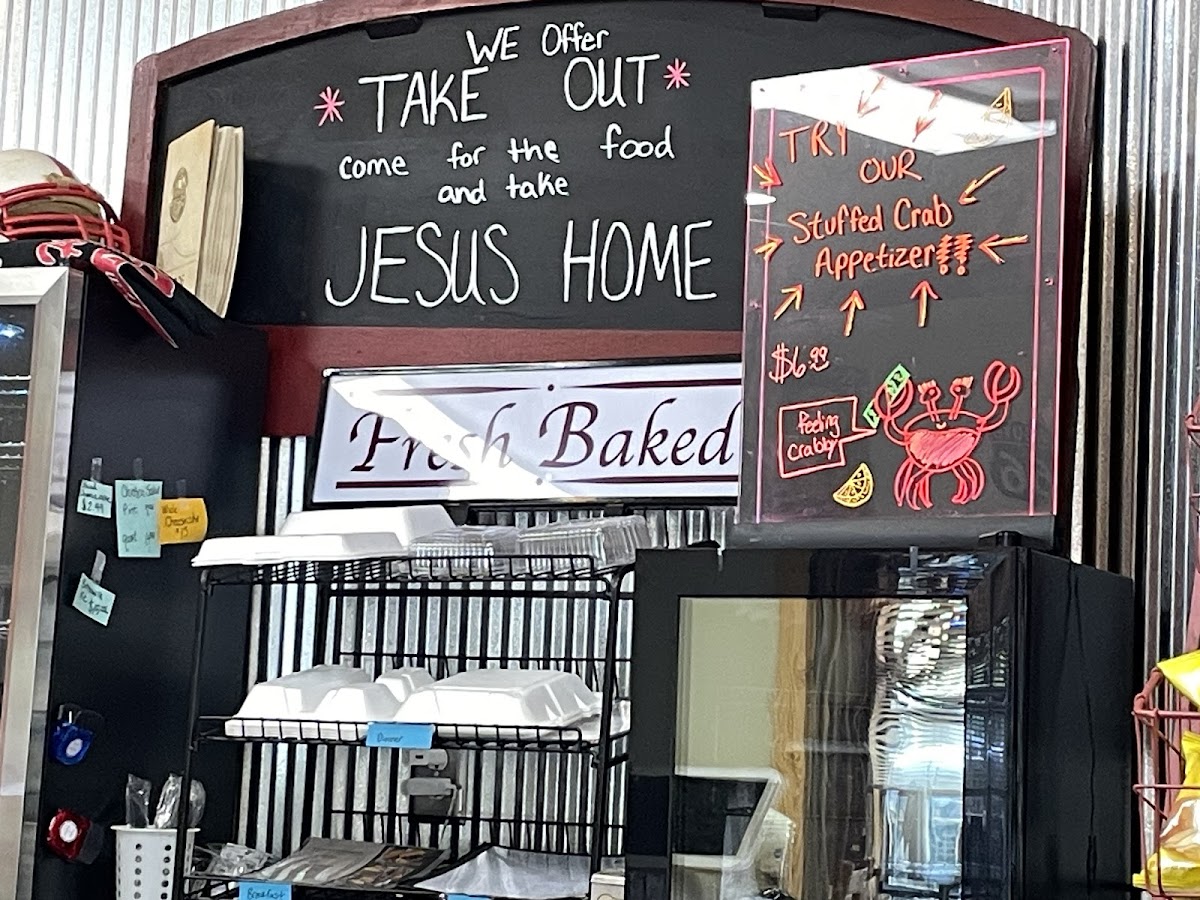 WE Offer
* TAKE OUT *
come for the food
and take
JESUS HOME
TRY
OUR
Stuffed Crab
Appetizer!!!
$6.99
feeling
crabby
Fresh Baked
$2.99
Chicken Salad
Dinner
Breakfast